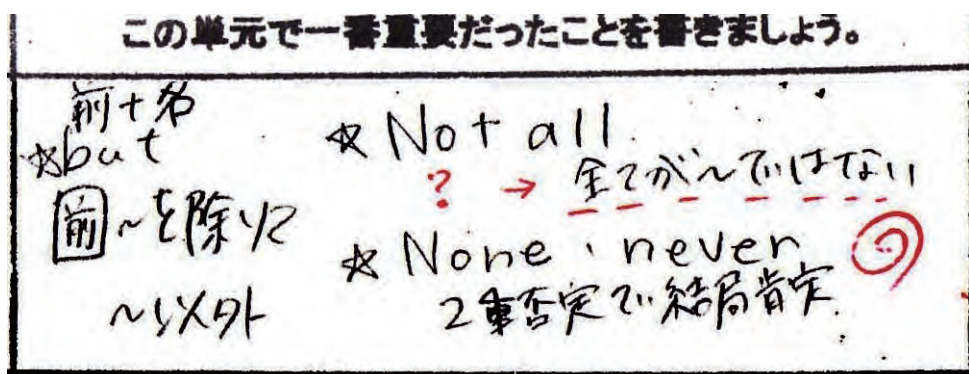 この単元で一番重要だったことを書きましょう。
前+名
☆but
前 ~を除いて
~以外
☆ Not all
? → 全てが~ではない
☆ None・never
2重否定で結局肯定.